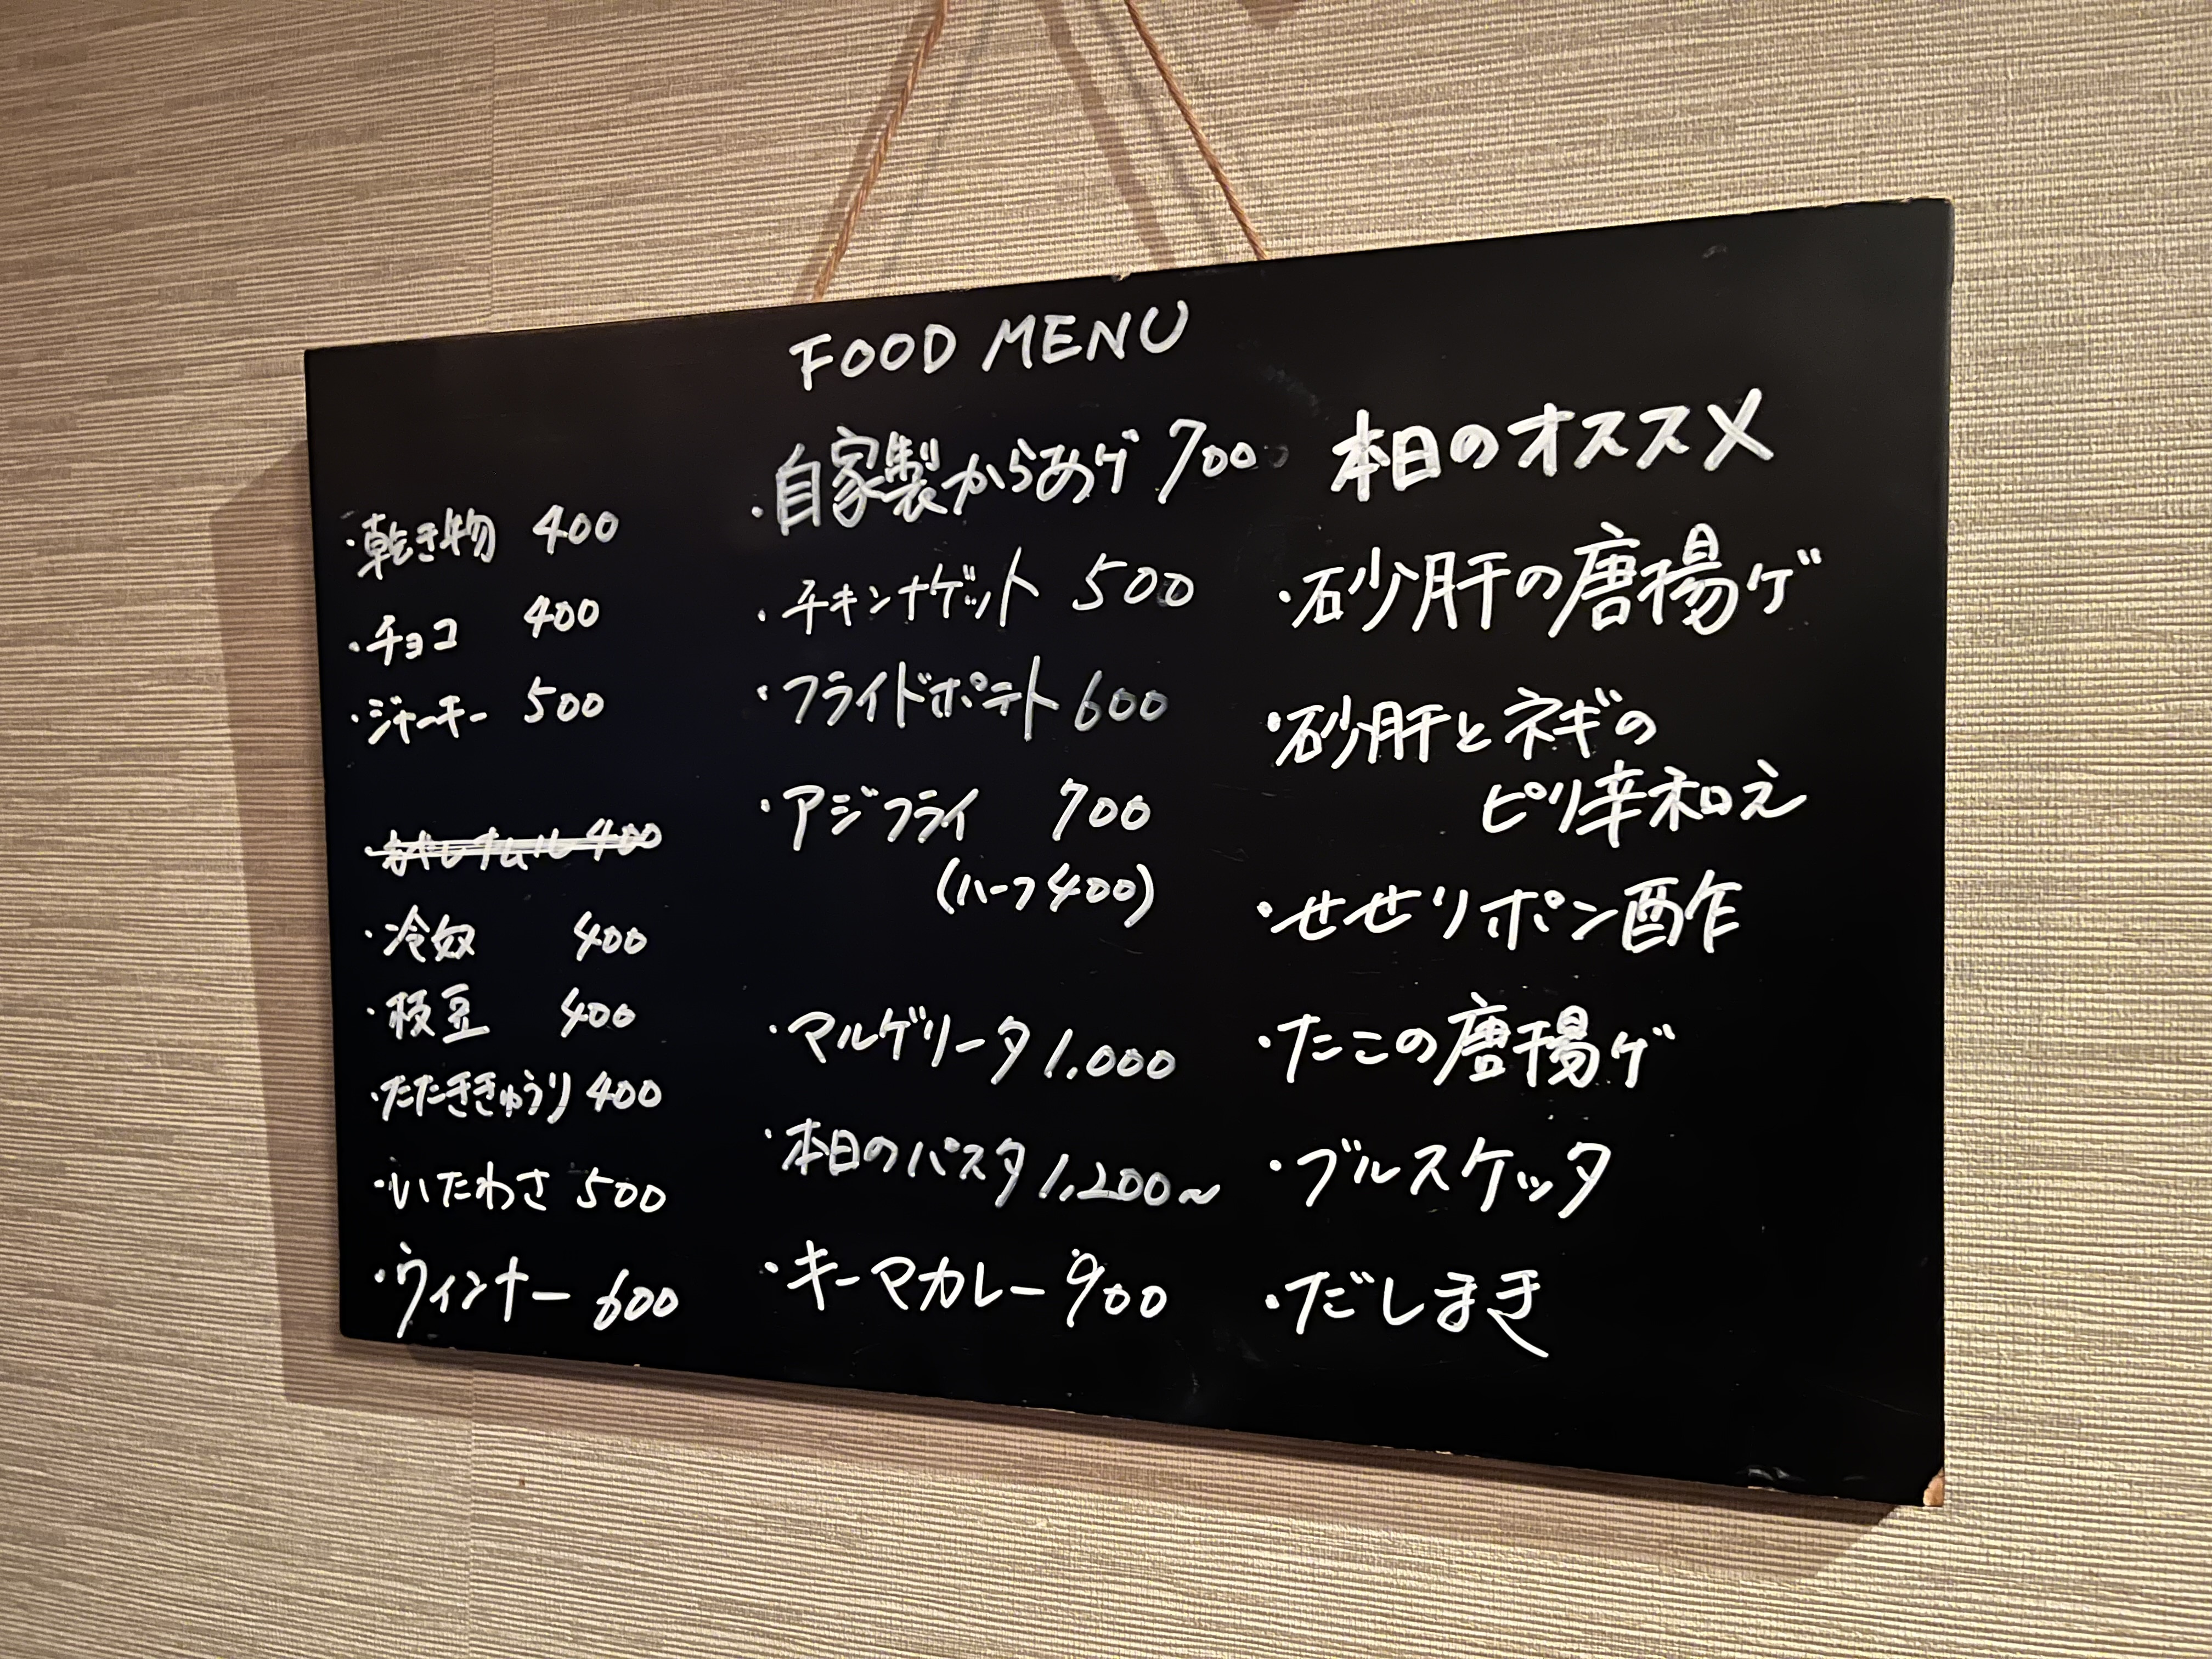 FOOD MENU
・乾き物 400
・チョコ 400
・ジャーキー 500
・もやしナムル 400
・冷奴 400
・枝豆 400
・たたききゅうり 400
・いたわさ 500
・ウィンナー 600
・自家製からあゲ 700
・チキンナゲット 500
・フライドポテト 600
・アジフライ 700
(ハーフ400)
・マルゲリータ 1,000
・本日のパスタ 1,200~
・キーマカレー 900
本日のオススメ
・砂肝の唐揚ゲ
・砂肝とネギの
ピリ辛和え
・せせりポン酢
・たこの唐揚ゲ
・ブルスケッタ
・だしまき